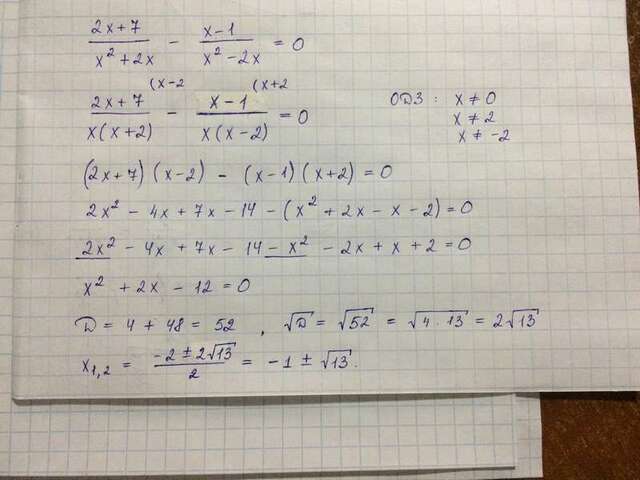 (2x+7)/(x²+2x) - (x-1)/(x²-2x) = 0
(x-2 (x+2
(2x+7)/(x(x+2)) - (x-1)/(x(x-2)) = 0
ОДЗ: x ≠ 0
x ≠ 2
x ≠ -2
(2x+7)(x-2) - (x-1)(x+2) = 0
2x² - 4x + 7x - 14 - (x² + 2x - x - 2) = 0
2x² - 4x + 7x - 14 - x² - 2x + x + 2 = 0
x² + 2x - 12 = 0
D = 4 + 48 = 52, √D = √52 = √4·13 = 2√13
x₁,₂ = (-2 ± 2√13)/2 = -1 ± √13.